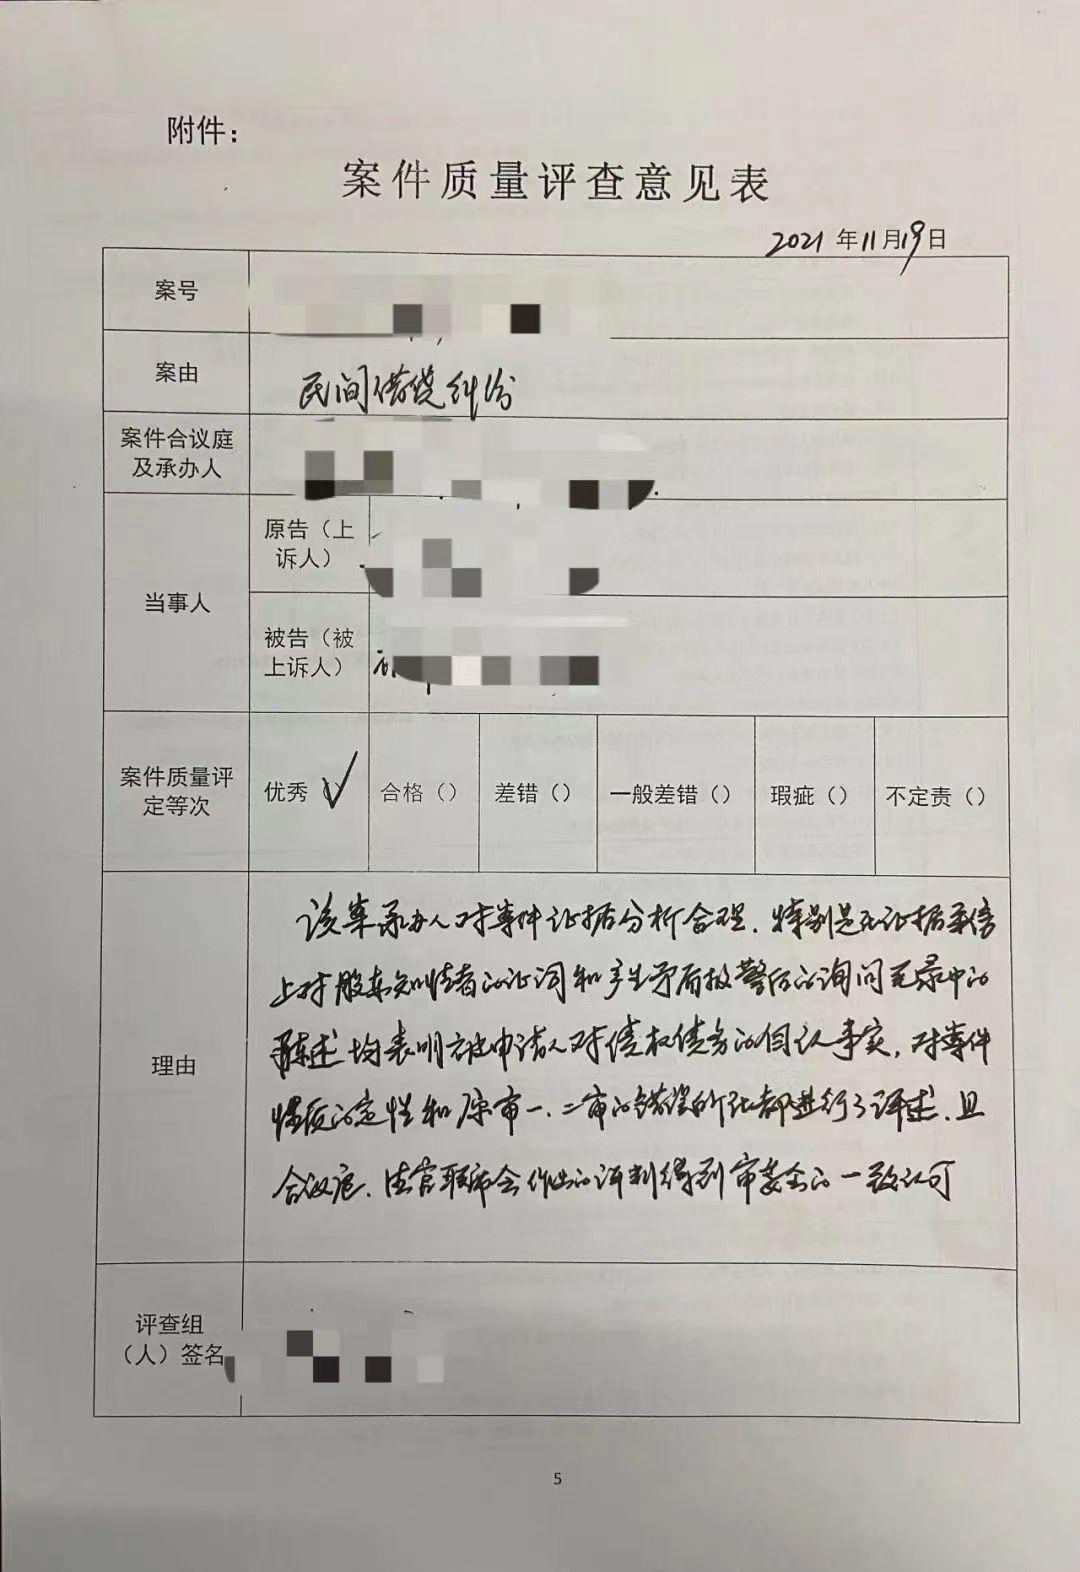 附件：
案件质量评查意见表
2021年11月19日
案号
案由
民间借贷纠纷
案件合议庭
及承办人
当事人
原告（上
诉人）
被告（被
上诉人）
案件质量评
定等次
优秀（√）
合格（）
差错（）
一般差错（）
瑕疵（）
不定责（）
理由
该案承办人对案件证据分析合理．特别是无证据
上对股东知情者的证词和产生矛盾报警后的询问笔录中的
陈述均表明被申请人对债权债务的自认事实，对案件
性质的定性和原审一、二审的错误都进行了评述，且
合议庭、法官联席会作出的评判得到审委会的一致认可
评查组
（人）签名
5